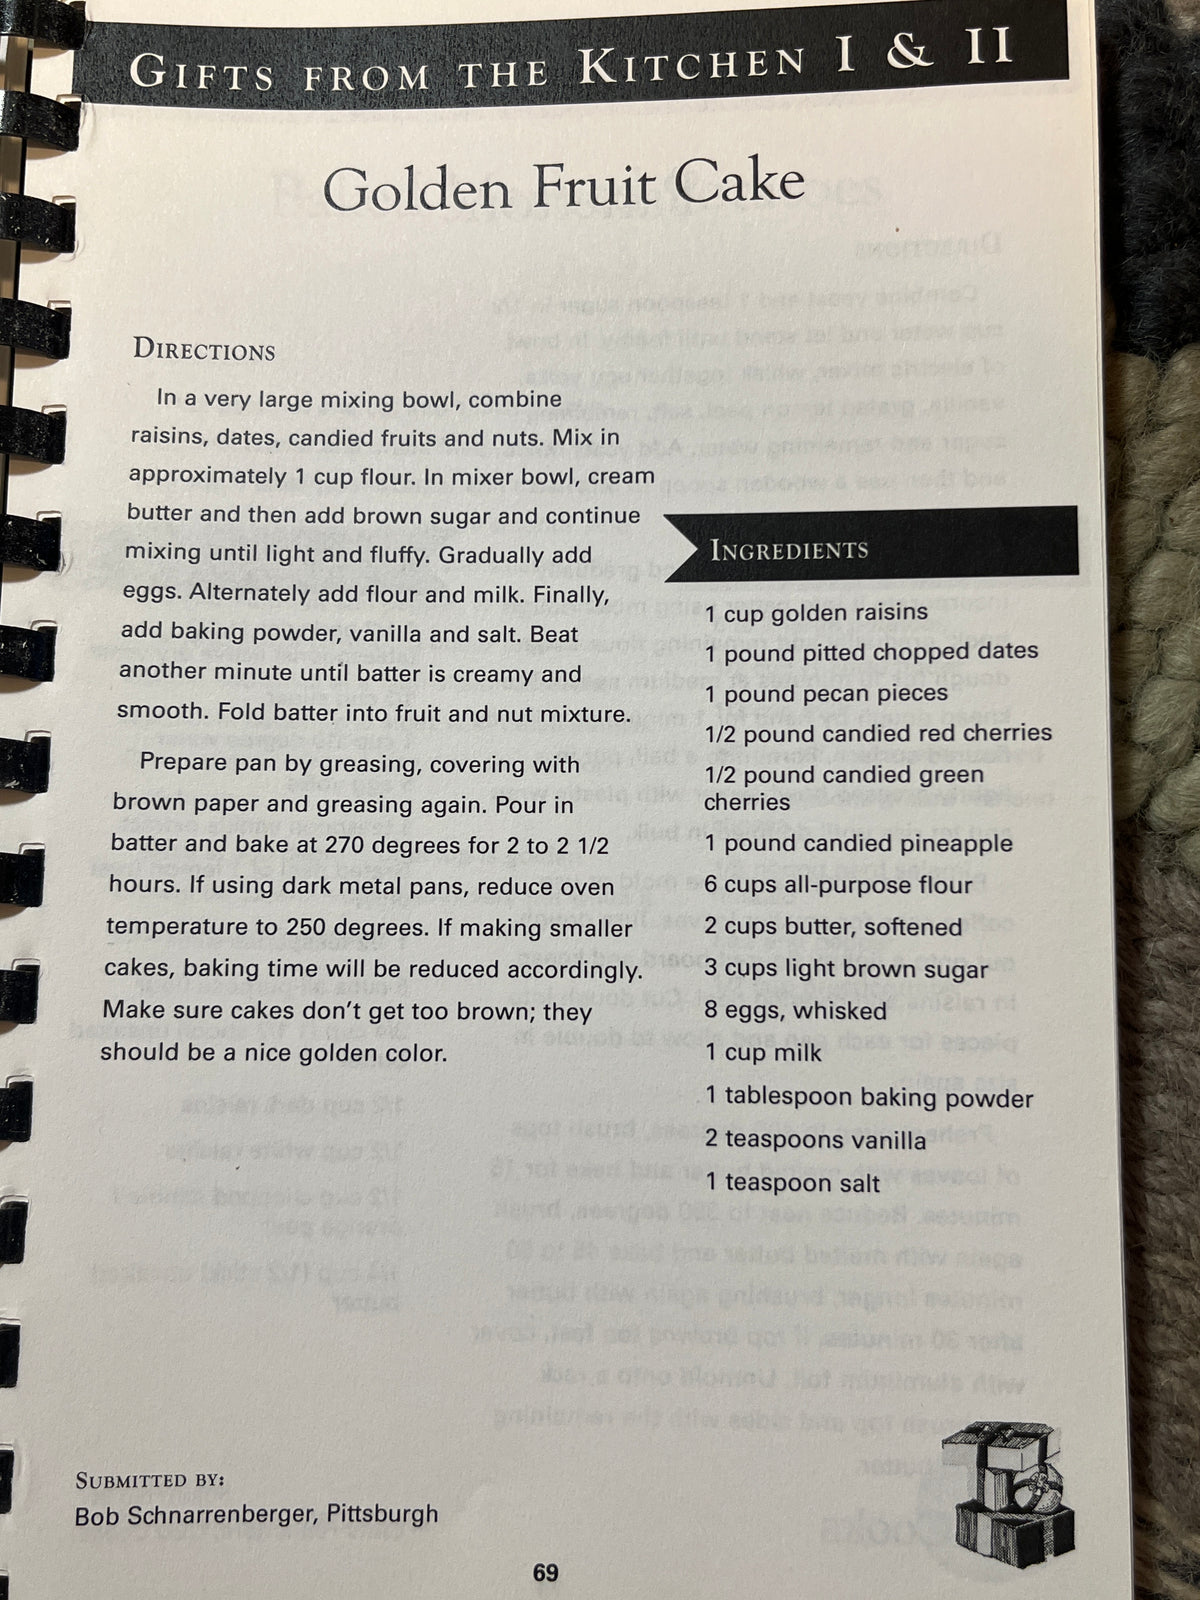 GIFTS FROM THE KITCHEN I & II
Golden Fruit Cake
DIRECTIONS
In a very large mixing bowl, combine
raisins, dates, candied fruits and nuts. Mix in
approximately 1 cup flour. In mixer bowl, cream
butter and then add brown sugar and continue
mixing until light and fluffy. Gradually add
eggs. Alternately add flour and milk. Finally,
add baking powder, vanilla and salt. Beat
another minute until batter is creamy and
smooth. Fold batter into fruit and nut mixture.
Prepare pan by greasing, covering with
brown paper and greasing again. Pour in
batter and bake at 270 degrees for 2 to 2 1/2
hours. If using dark metal pans, reduce oven
temperature to 250 degrees. If making smaller
cakes, baking time will be reduced accordingly.
Make sure cakes don't get too brown; they
should be a nice golden color.
INGREDIENTS
1 cup golden raisins
1 pound pitted chopped dates
1 pound pecan pieces
1/2 pound candied red cherries
1/2 pound candied green
cherries
1 pound candied pineapple
6 cups all-purpose flour
2 cups butter, softened
3 cups light brown sugar
8 eggs, whisked
1 cup milk
1 tablespoon baking powder
2 teaspoons vanilla
1 teaspoon salt
SUBMITTED BY:
Bob Schnarrenberger, Pittsburgh
69